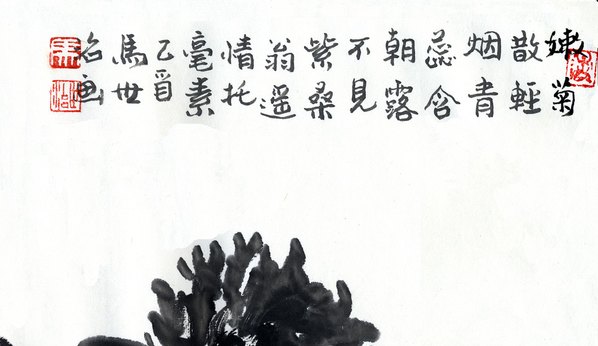 嫩菊
散輕
烟青
蕊含
朝露
不見
紫桑
翁遥
情托
毫素
乙酉
馬世
画